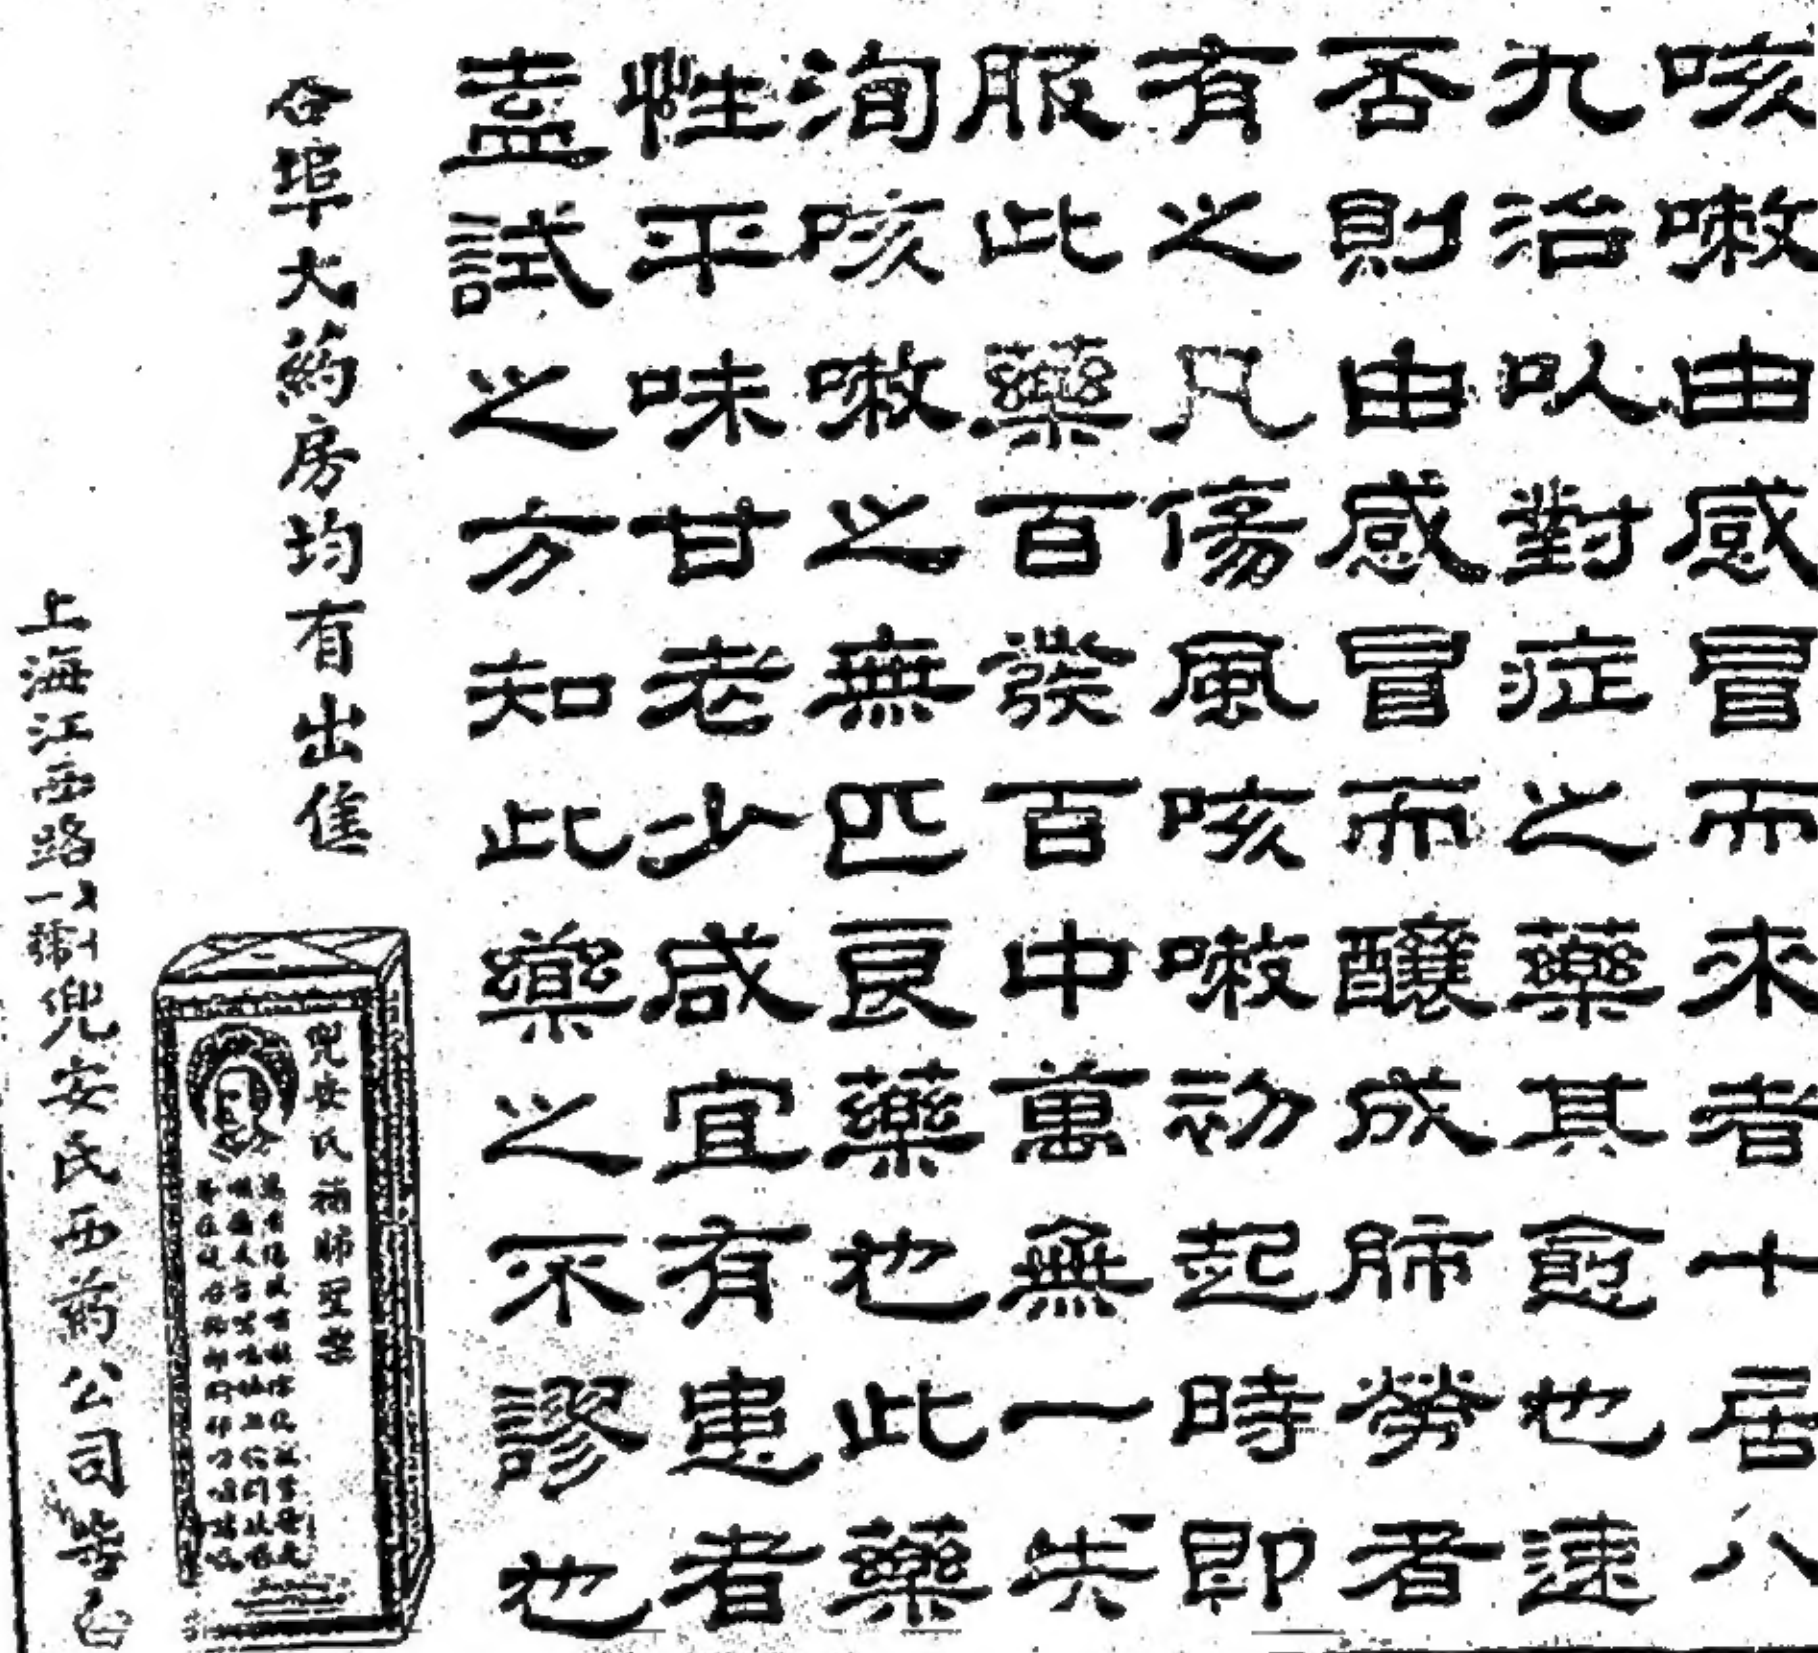 咳嗽由感冒而來者十居八
九治以對症之藥其愈也速
否則由感冒而釀成肺癆者
有之凡傷風咳嗽初起時即
服此藥百發百中萬無一失
洵咳嗽之無匹良藥也此藥
性平味甘老少咸宜有患者
盍試之方知此藥之不謬也
各埠大葯房均有出售
兜安氏補肺聖藥
上海江西路
兜安氏西葯公司謹啟